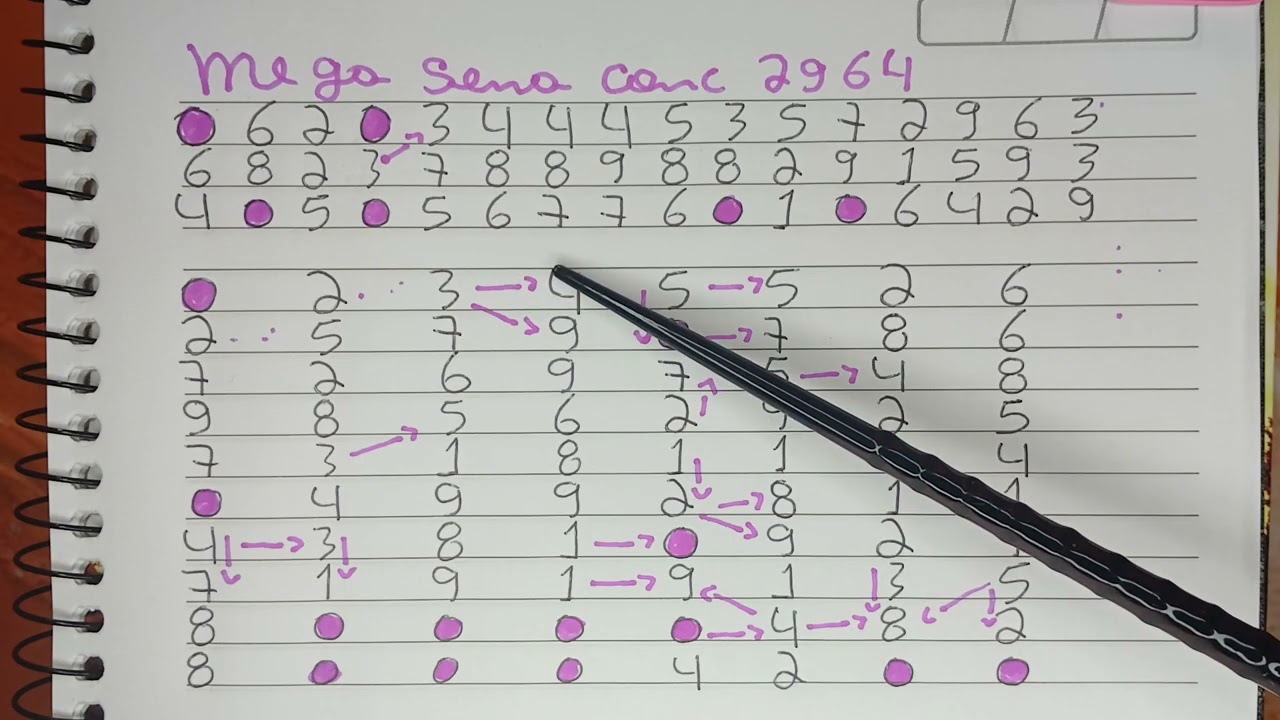 Mega Sena conc 2964
6 2 3 4 4 4 5 3 5 7 2 9 6 3
6 8 2 3 7 8 8 9 8 8 2 9 1 5 9 3
4 5 5 6 7 7 6 1 6 4 2 9
2 3 4 5 5 2 6
2 5 7 9 7 8 6
7 2 6 9 7 4 8
9 8 5 6 2 9 2 5
7 3 1 8 1 1 4
4 9 9 2 8 1 1
4 3 8 1 9 2
7 1 9 1 9 1 3 5
8 4 8 2
8 4 2